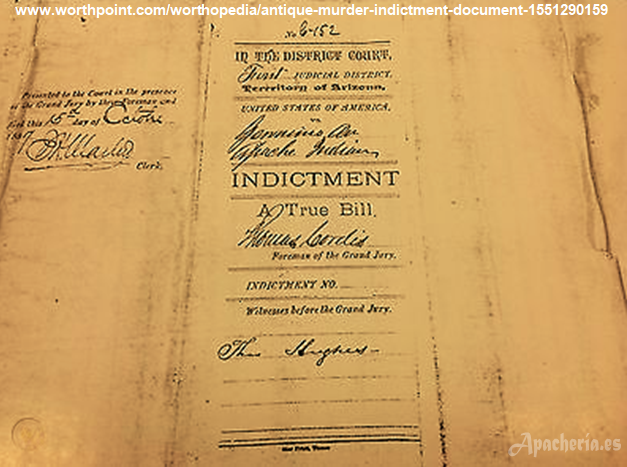 www.worthpoint.com/worthopedia/antique-murder-indictment-document-1551290159
No. 6-152
IN THE DISTRICT COURT,
First JUDICIAL DISTRICT,
Territory of Arizona,
UNITED STATES OF AMERICA,
vs
Geronimo, an
Apache Indian
INDICTMENT
A True Bill,
Thomas Cordis
Foreman of the Grand Jury.
INDICTMENT NO.
Witnesses before the Grand Jury.
Thos Hughes
Star Print, Tucson
Presented to the Court in the presence
of the Grand Jury by their Foreman and
filed this 15th day of October
1887
Clerk.
Apachería.es